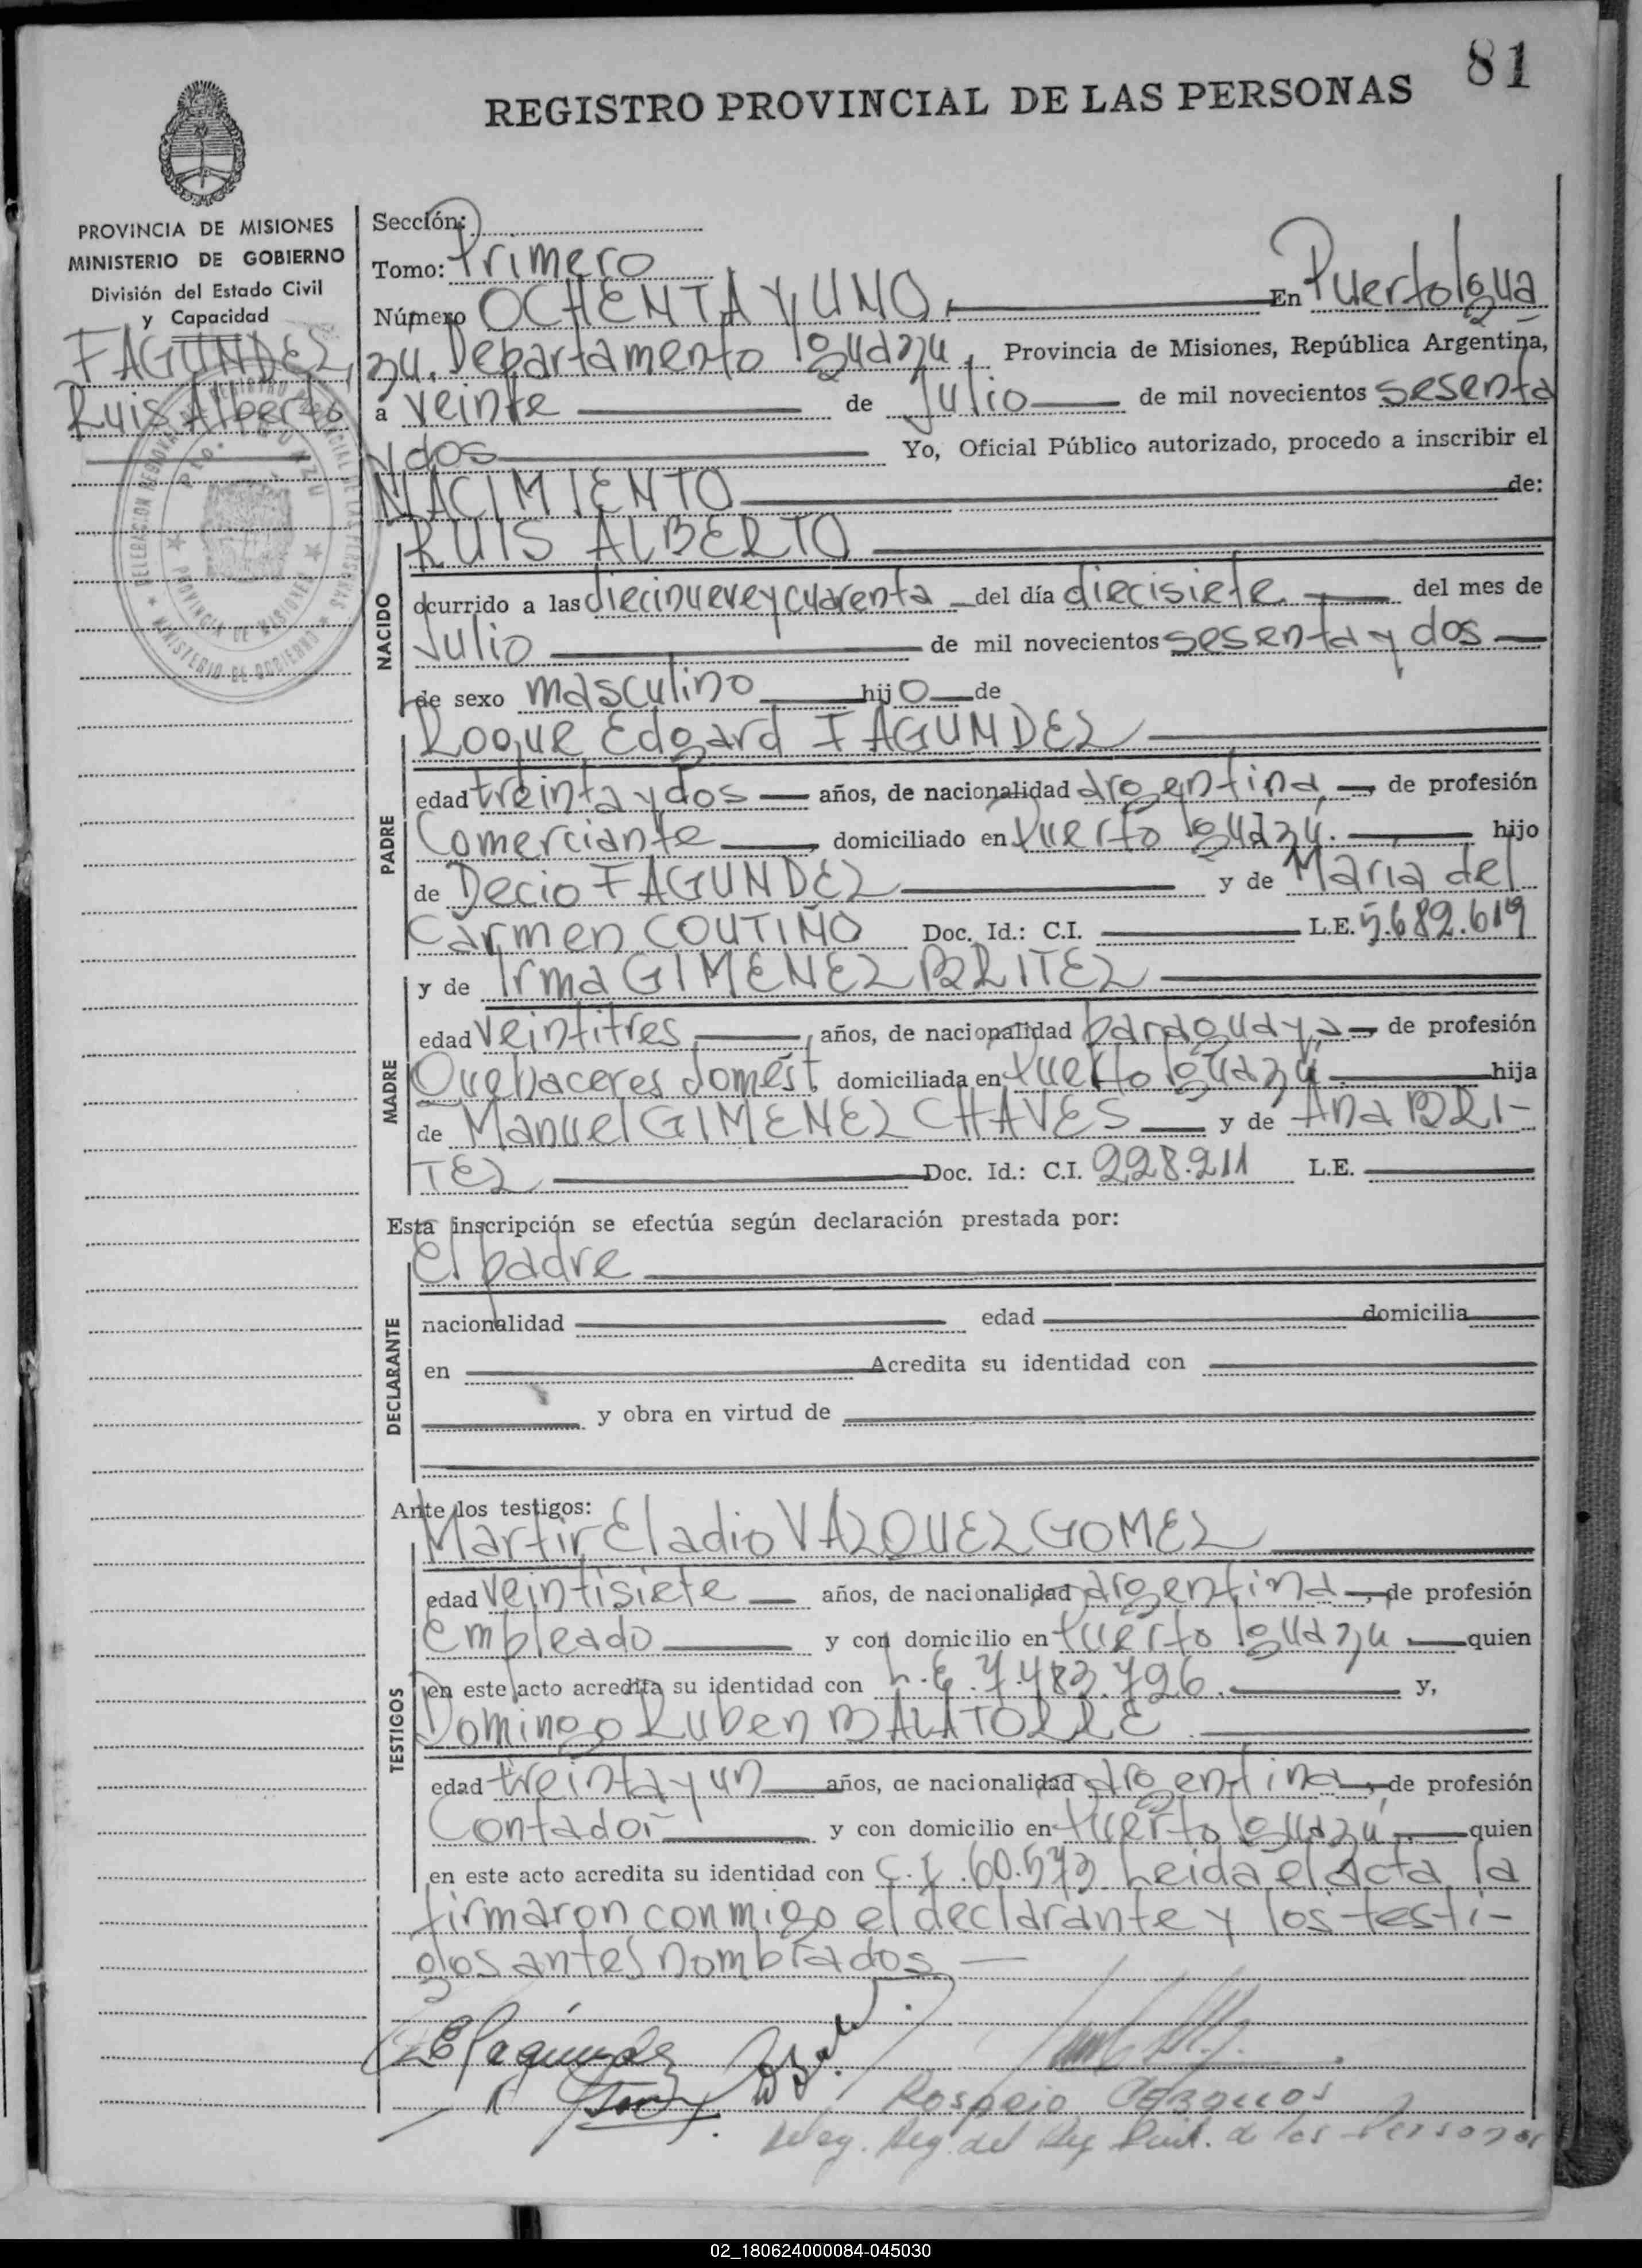 81
REGISTRO PROVINCIAL DE LAS PERSONAS
PROVINCIA DE MISIONES
MINISTERIO DE GOBIERNO
División del Estado Civil
y Capacidad
FAGUNDEZ,
Ruis Alberto
DELEGACION REGIONAL REGISTRO PROVINCIAL DE LAS PERSONAS
Pto. IGUAZU
PROVINCIA DE MISIONES
MINISTERIO DE GOBIERNO
Sección:
Tomo: Primero
Número OCHENTA Y UNO. En Puerto Igua
zu. Departamento Iguazu, Provincia de Misiones, República Argentina,
a veinte de Julio de mil novecientos sesenta
y dos Yo, Oficial Público autorizado, procedo a inscribir el
NACIMIENTO de:
RUIS ALBERTO
NACIDO
ocurrido a las diecinueve y cuarenta del día diecisiete. del mes de
Julio de mil novecientos sesenta y dos
de sexo masculino hijo de
Roque Edgard FAGUNDEZ
PADRE
edad treinta y dos años, de nacionalidad argentina, de profesión
Comerciante, domiciliado en Puerto Iguazú. hijo
de Decio FAGUNDEZ y de Maria del
Carmen COUTIÑO Doc. Id.: C.I. L.E. 5.682.619
y de Irma GIMENEZ BRITEZ
MADRE
edad veintitres, años, de nacionalidad paraguaya de profesión
Quehaceres domést. domiciliada en Puerto Iguazú hija
de Manuel GIMENEZ CHAVES y de Ana BRI-
TEZ Doc. Id.: C.I. 228.211 L.E.
Esta inscripción se efectúa según declaración prestada por:
el padre
DECLARANTE
nacionalidad edad domicilia
en Acredita su identidad con
y obra en virtud de
Ante los testigos:
Martir Eladio VAZQUEZ GOMEZ
TESTIGOS
edad veintisiete años, de nacionalidad argentina, de profesión
empleado y con domicilio en Puerto Iguazu quien
en este acto acredita su identidad con L.E. 7.483.796. y,
Domingo Ruben BALATORRE
edad treinta y un años, de nacionalidad argentina, de profesión
Contador y con domicilio en Puerto Iguazú, quien
en este acto acredita su identidad con C.I. 60.573 Leida el acta, la
firmaron conmigo el declarante y los testi-
gos antes nombrados
Fagundez
Rosario
Deleg. Reg. del Reg. Pcial. de las Personas
02_180624000084-045030